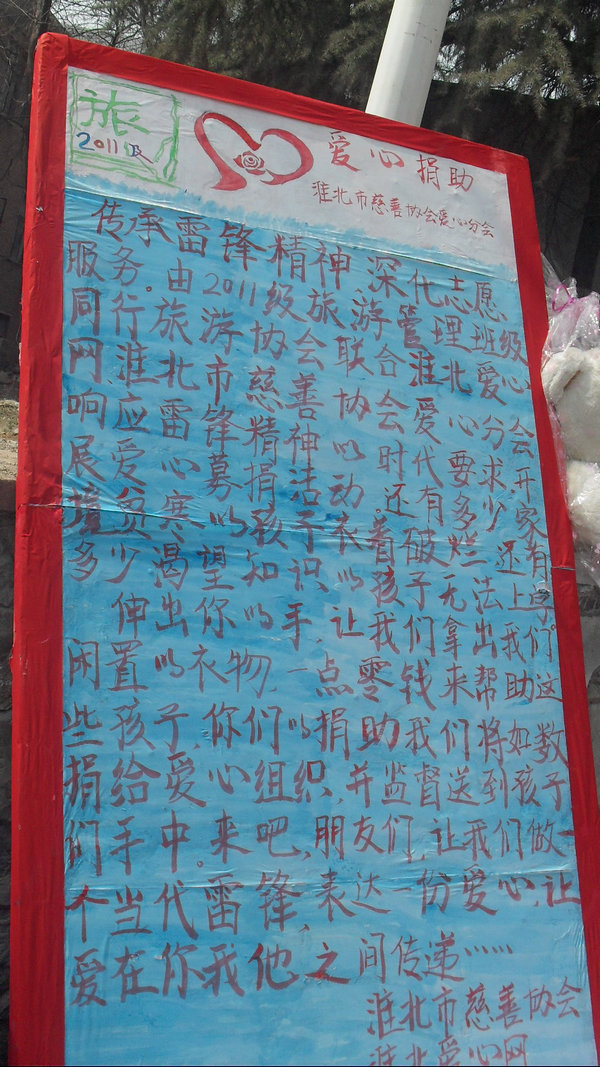 旅
2011级
爱心捐助
淮北市慈善协会爱心分会
传承雷锋精神,深化志愿
服务。由2011级旅游管理班级
同行旅游协会、联合淮北爱心
网淮北市慈善协会爱心分会
响应雷锋精神的时代要求,开
展爱心募捐活动。还有多少家
境贫寒的孩子衣着破烂,还有
多少渴望知识的孩子无法上学。
伸出你的手,让我们拿出我们
闲置的衣物,一点零钱来帮助这
些孩子,你们的捐助我们将如数
捐给爱心组织,并监督送到孩子
们手中。来吧,朋友们,让我们做一
个当代雷锋,表达一份爱心,让
爱在你我他之间传递……
淮北市慈善协会
淮北爱心网